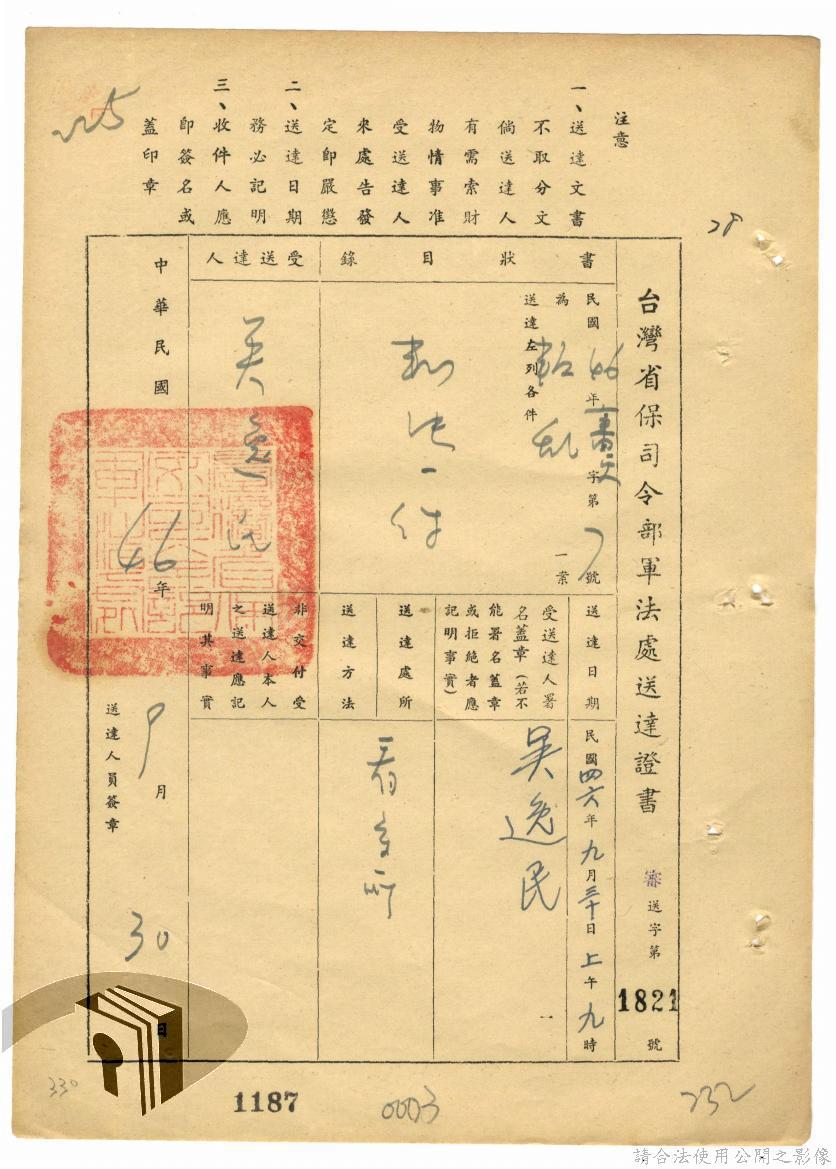 225
注意
一、送達文書
不取分文
倘送達人
有需索財
物情事准
受送達人
來處告發
定即嚴懲
二、送達日期
務必記明
三、收件人應
即簽名或
蓋印章
28
台灣省保司令部軍法處送達證書 審送字第1821號
書狀目錄
民國46年審交字第 號
為 叛亂 一案
送達左列各件
判決一件
受送達人
吳逸民
送達日期
民國四六年九月三十日上午九時
受送達人署
名蓋章(若不
能署名蓋章
或拒絕者應
記明事實)
吳逸民
送達處所
看守所
送達方法
非交付受
送達人本人
之送達應記
明其事實
中華民國46年9月30日
送達人員簽章
330
1187
0003
232
請合法使用公開之影像